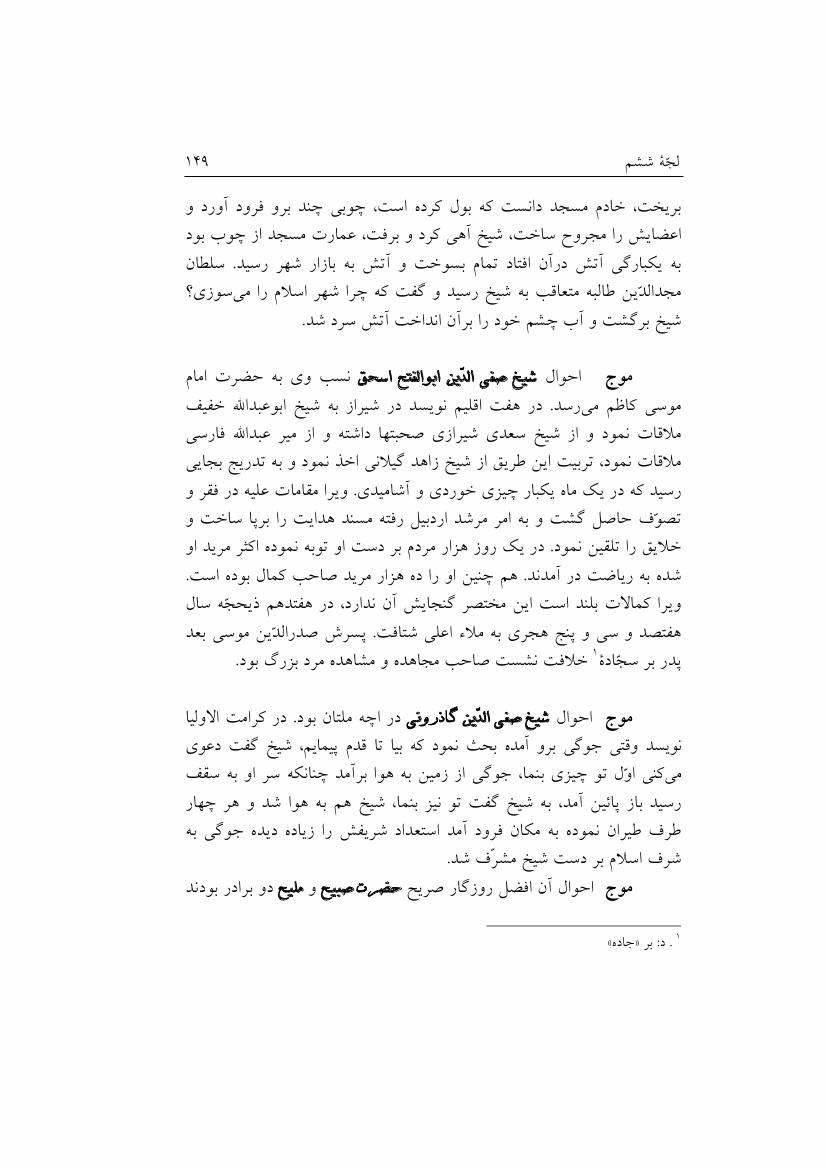 لجّهٔ ششم ۱۴۹
بریخت، خادم مسجد دانست که بول کرده است، چوبی چند برو فرود آورد و
اعضایش را مجروح ساخت، شیخ آهی کرد و برفت، عمارت مسجد از چوب بود
به یکبارگی آتش درآن افتاد تمام بسوخت و آتش به بازار شهر رسید. سلطان
مجدالدّین طالبه متعاقب به شیخ رسید و گفت که چرا شهر اسلام را می‌سوزی؟
شیخ برگشت و آب چشم خود را برآن انداخت آتش سرد شد.
موج احوال شیخ صفی الدّین ابوالفتح اسحق نسب وی به حضرت امام
موسی کاظم می‌رسد. در هفت اقلیم نویسد در شیراز به شیخ ابوعبدالله خفیف
ملاقات نمود و از شیخ سعدی شیرازی صحبتها داشته و از میر عبدالله فارسی
ملاقات نمود، تربیت این طریق از شیخ زاهد گیلانی اخذ نمود و به تدریج بجایی
رسید که در یک ماه یکبار چیزی خوردی و آشامیدی. ویرا مقامات علیه در فقر و
تصوّف حاصل گشت و به امر مرشد اردبیل رفته مسند هدایت را برپا ساخت و
خلایق را تلقین نمود. در یک روز هزار مردم بر دست او توبه نموده اکثر مرید او
شده به ریاضت در آمدند. هم چنین او را ده هزار مرید صاحب کمال بوده است.
ویرا کمالات بلند است این مختصر گنجایش آن ندارد، در هفتدهم ذیحجّه سال
هفتصد و سی و پنج هجری به ملاء اعلی شتافت. پسرش صدرالدّین موسی بعد
پدر بر سجّادهٔ۱ خلافت نشست صاحب مجاهده و مشاهده مرد بزرگ بود.
موج احوال شیخ صفی الدّین گاذرونی در اچه ملتان بود. در کرامت الاولیا
نویسد وقتی جوگی برو آمده بحث نمود که بیا تا قدم پیمایم، شیخ گفت دعوی
می‌کنی اوّل تو چیزی بنما، جوگی از زمین به هوا برآمد چنانکه سر او به سقف
رسید باز پائین آمد، به شیخ گفت تو نیز بنما، شیخ هم به هوا شد و هر چهار
طرف طیران نموده به مکان فرود آمد استعداد شریفش را زیاده دیده جوگی به
شرف اسلام بر دست شیخ مشرّف شد.
موج احوال آن افضل روزگار صریح حضرت صبیح و ملیح دو برادر بودند
۱. د: بر «جاده»